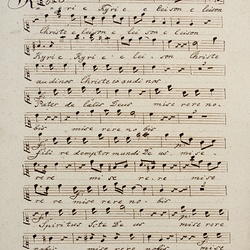 Kyrie Kyrie e leison e leison
Christe e leison e lei son e leison
Kyrie Kyrie e lei son Christe
audinos Christe ex audi nos
Pater de Celis Deus mise rere no
bis mise rere no bis
Fili re demptor mundi De us mise
rere mise re re mise re
re re mise rere no bis
Spiritus Scte De us mise rere
nobis mise re re mise rere no